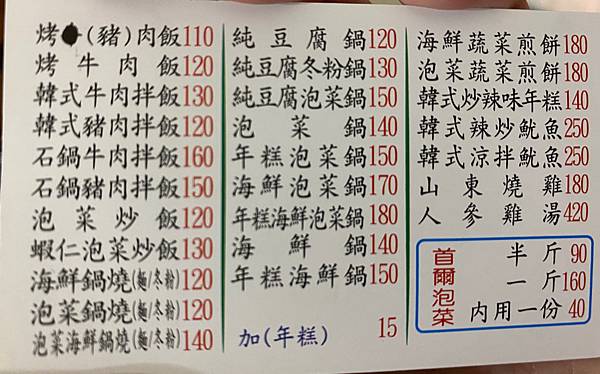 烤(豬)肉飯110
烤牛肉飯120
韓式牛肉拌飯130
韓式豬肉拌飯120
石鍋牛肉拌飯160
石鍋豬肉拌飯150
泡菜炒飯120
蝦仁泡菜炒飯130
海鮮鍋燒(麵/冬粉)120
泡菜鍋燒(麵/冬粉)120
泡菜海鮮鍋燒(麵/冬粉)140
純豆腐鍋120
純豆腐冬粉鍋130
純豆腐泡菜鍋150
泡菜鍋140
年糕泡菜鍋150
海鮮泡菜鍋170
年糕海鮮泡菜鍋180
海鮮鍋140
年糕海鮮鍋150
加(年糕) 15
海鮮蔬菜煎餅180
泡菜蔬菜煎餅180
韓式炒辣味年糕140
韓式辣炒魷魚250
韓式涼拌魷魚250
山東燒雞180
人參雞湯420
首爾泡菜
半斤90
一斤160
內用一份40